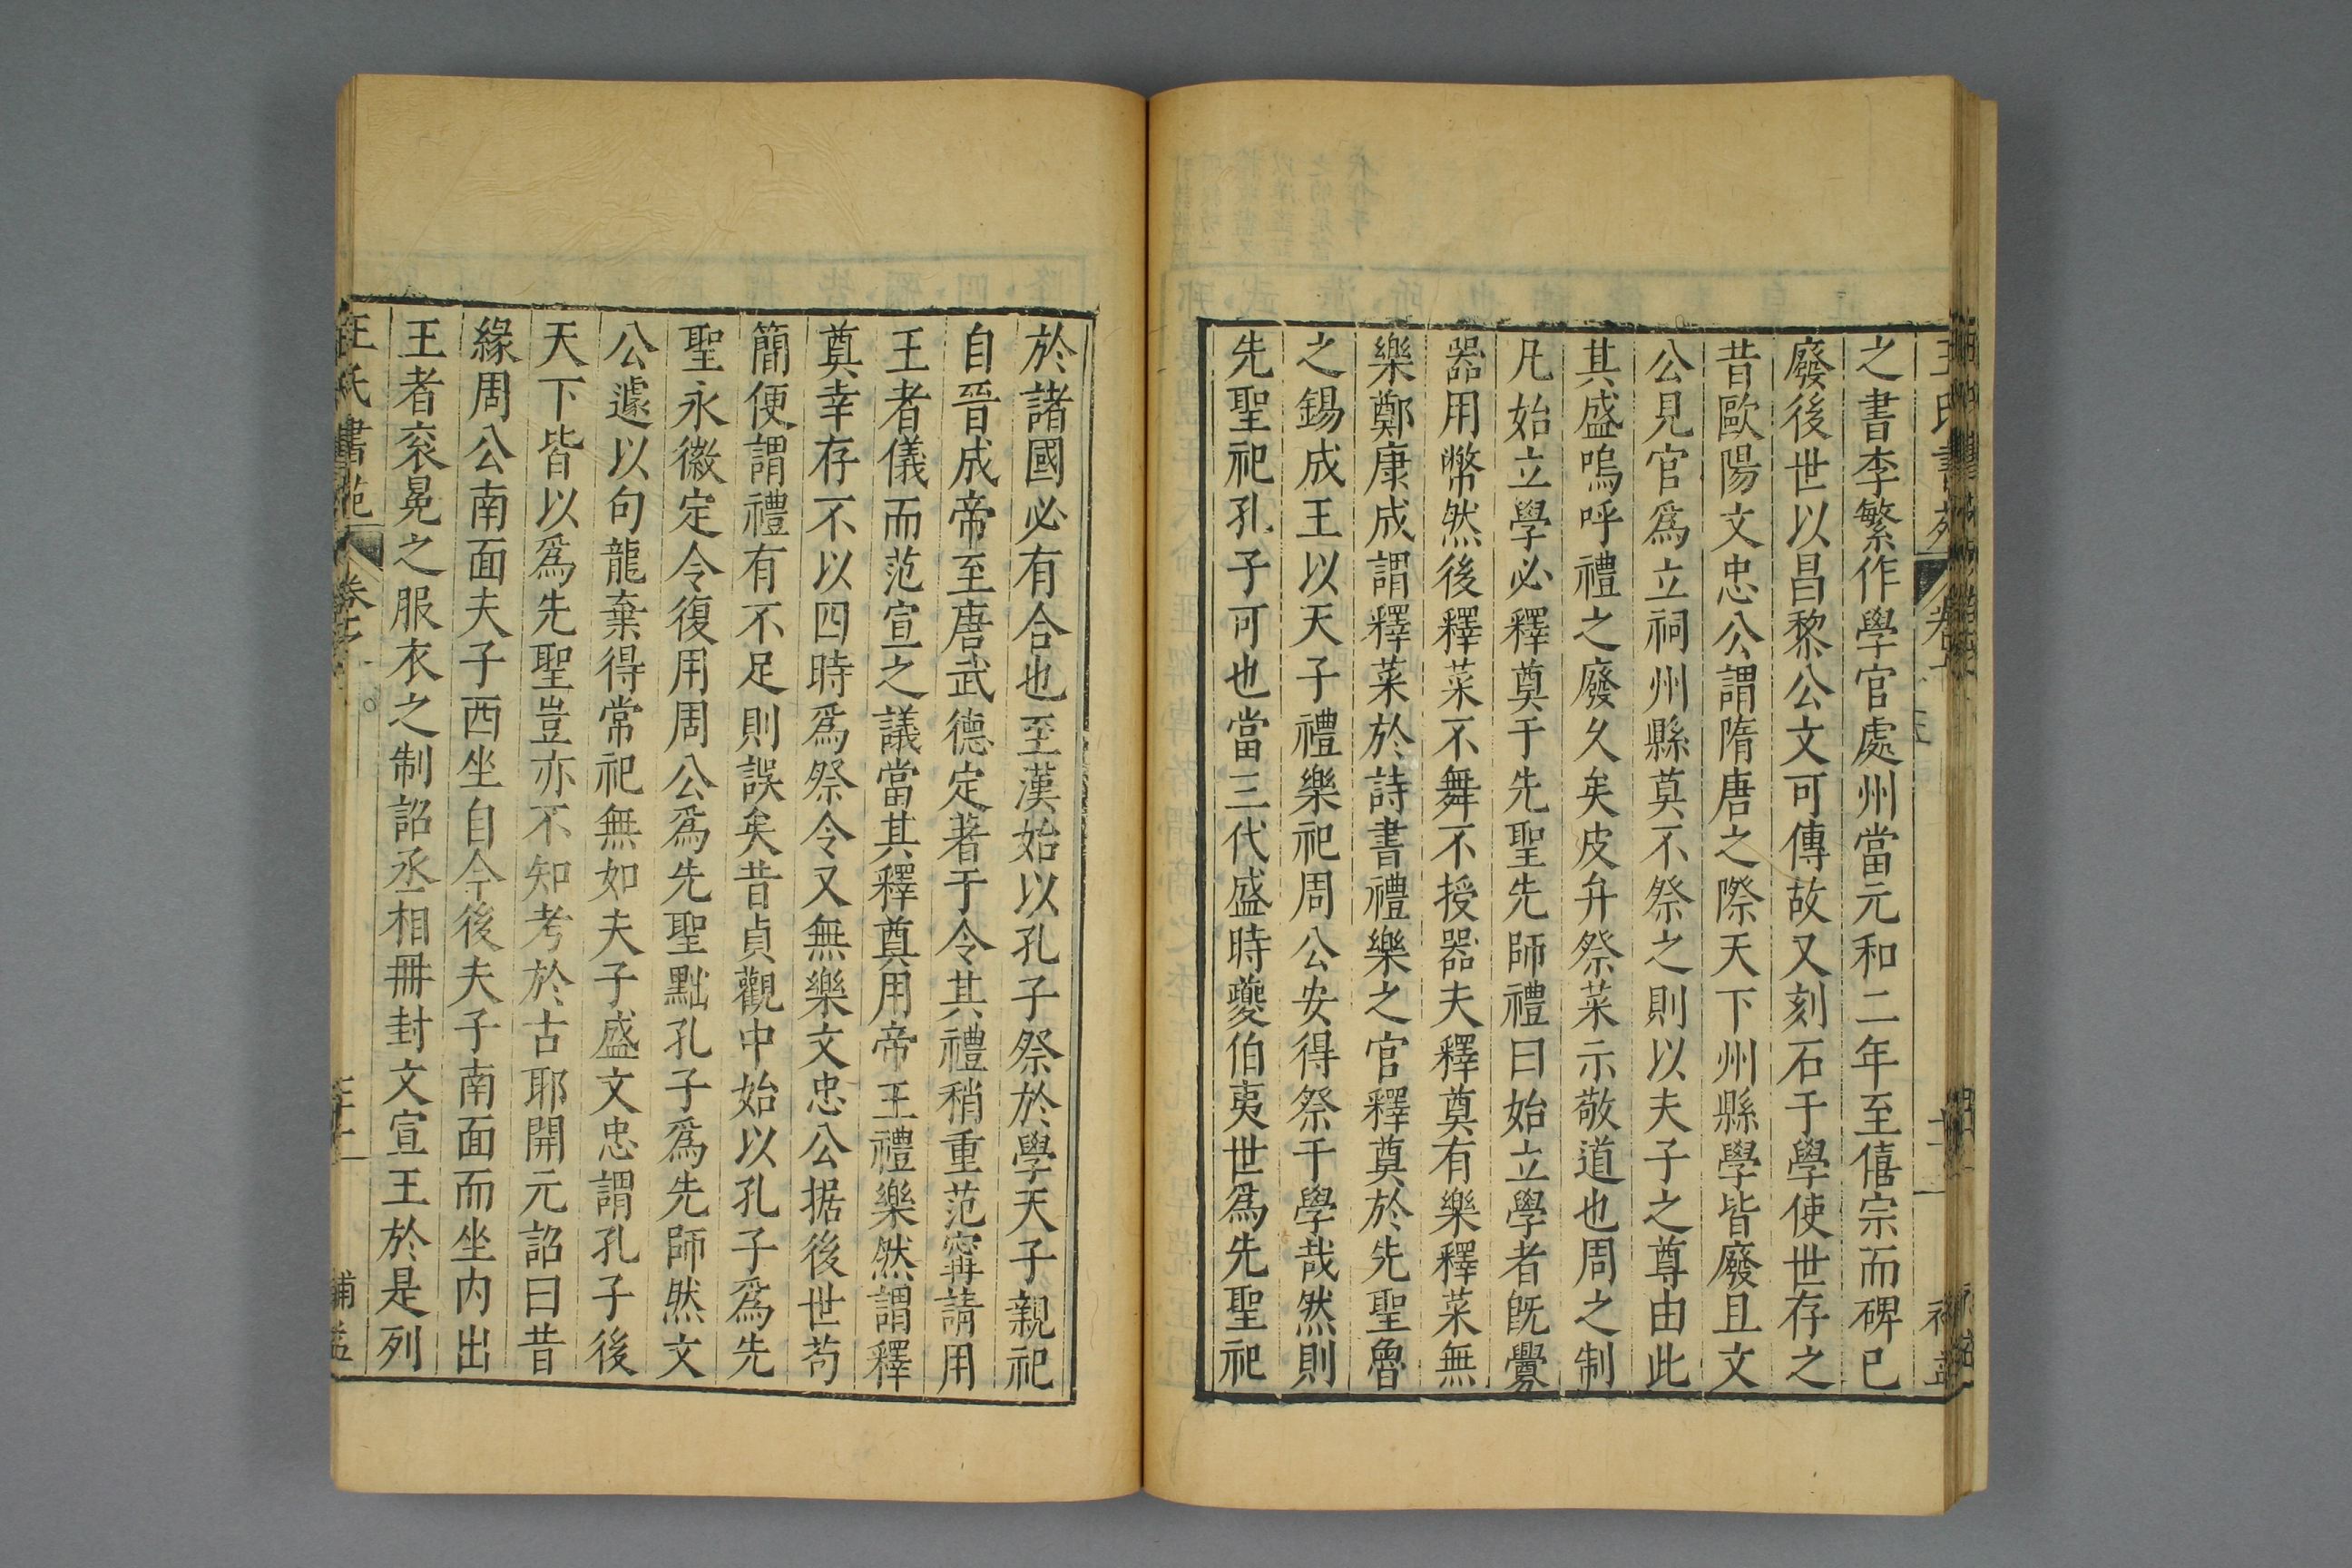 之書李繁作學官處州當元和二年至僖宗而碑已
廢後世以昌黎公文可傳故又刻石于學使世存之
昔歐陽文忠公謂隋唐之際天下州縣學皆廢且文
公見官爲立祠州縣莫不祭之則以夫子之尊由此
其盛嗚呼禮之廢久矣皮弁祭菜示敬道也周之制
凡始立學必釋奠于先聖先師禮曰始立學者旣釁
器用幣然後釋菜不舞不授器夫釋奠有樂釋菜無
樂鄭康成謂釋菜於詩書禮樂之官釋奠於先聖魯
之錫成王以天子禮樂祀周公安得祭于學哉然則
先聖祀孔子可也當三代盛時夔伯夷世爲先聖祀
於諸國必有合也至漢始以孔子祭於學天子親祀
自晉成帝至唐武德定著于令其禮稍重范甯請用
王者儀而范宣之議當其釋奠用帝王禮樂然謂釋
奠幸存不以四時爲祭令又無樂文忠公据後世苟
簡便謂禮有不足則誤矣昔貞觀中始以孔子爲先
聖永徽定令復用周公爲先聖黜孔子爲先師然文
公遽以句龍棄得常祀無如夫子盛文忠謂孔子後
天下皆以爲先聖豈亦不知考於古耶開元詔曰昔
緣周公南面夫子西坐自今後夫子南面而坐内出
王者衮冕之服衣之制詔丞相冊封文宣王於是列
王氏書苑 卷之 補益